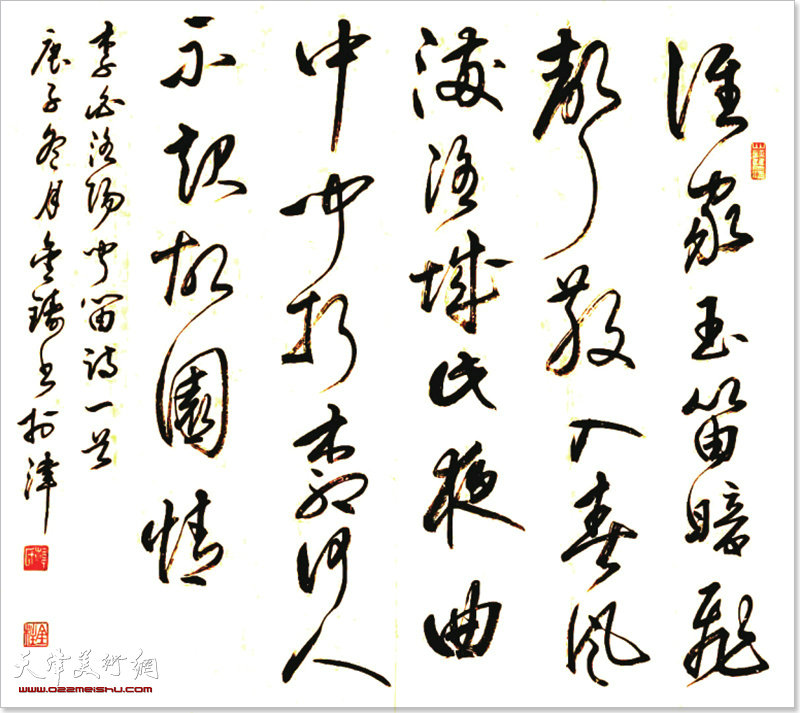 誰家玉笛暗飛
聲散入春風
滿洛城此夜曲
中聞折柳何人
不起故園情
李白洛陽聞笛詩一首
庚子冬月金鑄書於津
天津美術網
www.022meishu.com